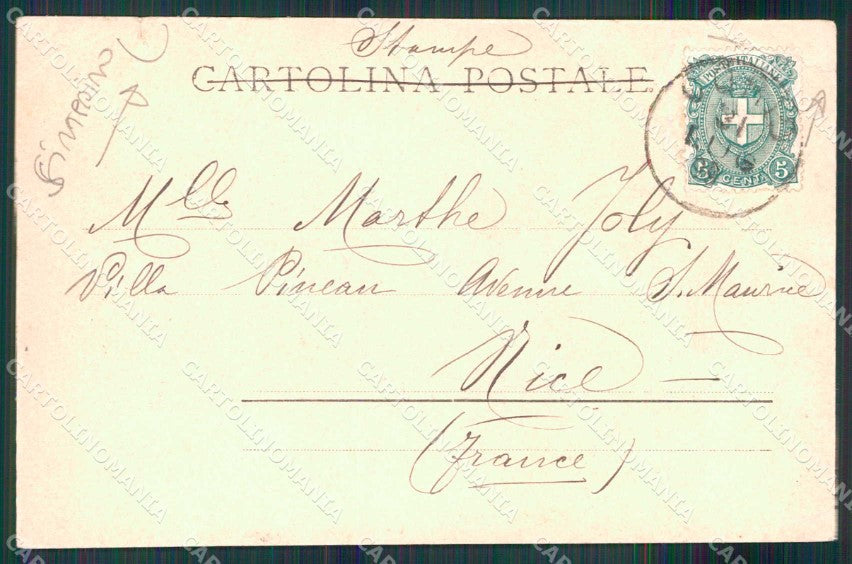 Stampe
CARTOLINA POSTALE
POSTE ITALIANE
5 CENT. 5
Mlle Marthe Joly
Villa Pineau Avenue S. Maurice
Nice —
(France)
CARTOLINOMANIA